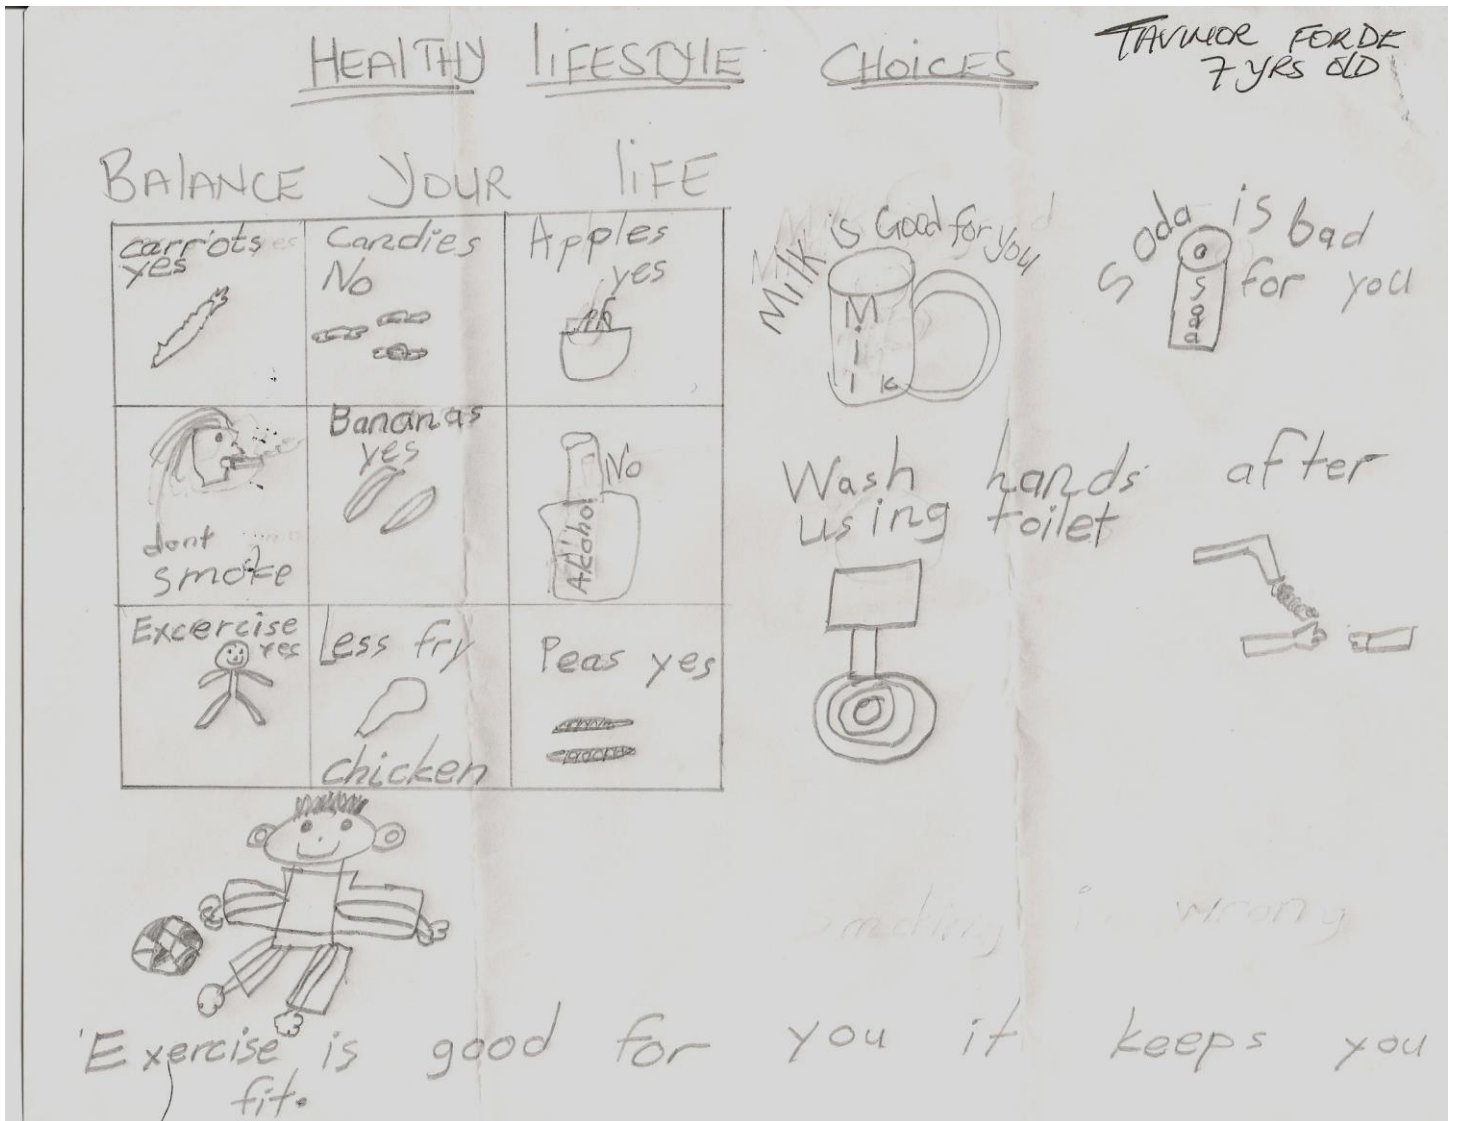 HEALTHY LIFESTYLE CHOICES
TAVINOR FORDE
7 YRS OLD
BALANCE YOUR LIFE
carrots
yes
Candies
No
Apples
yes
dont
smoke
Bananas
yes
No
Alcohol
Excercise
yes
Less fry
chicken
Peas yes
Milk is Good for you
Milk
Soda is bad
for you
Soda
Wash hands after
using toilet
is wrong
Exercise is good for you it keeps you
fit.